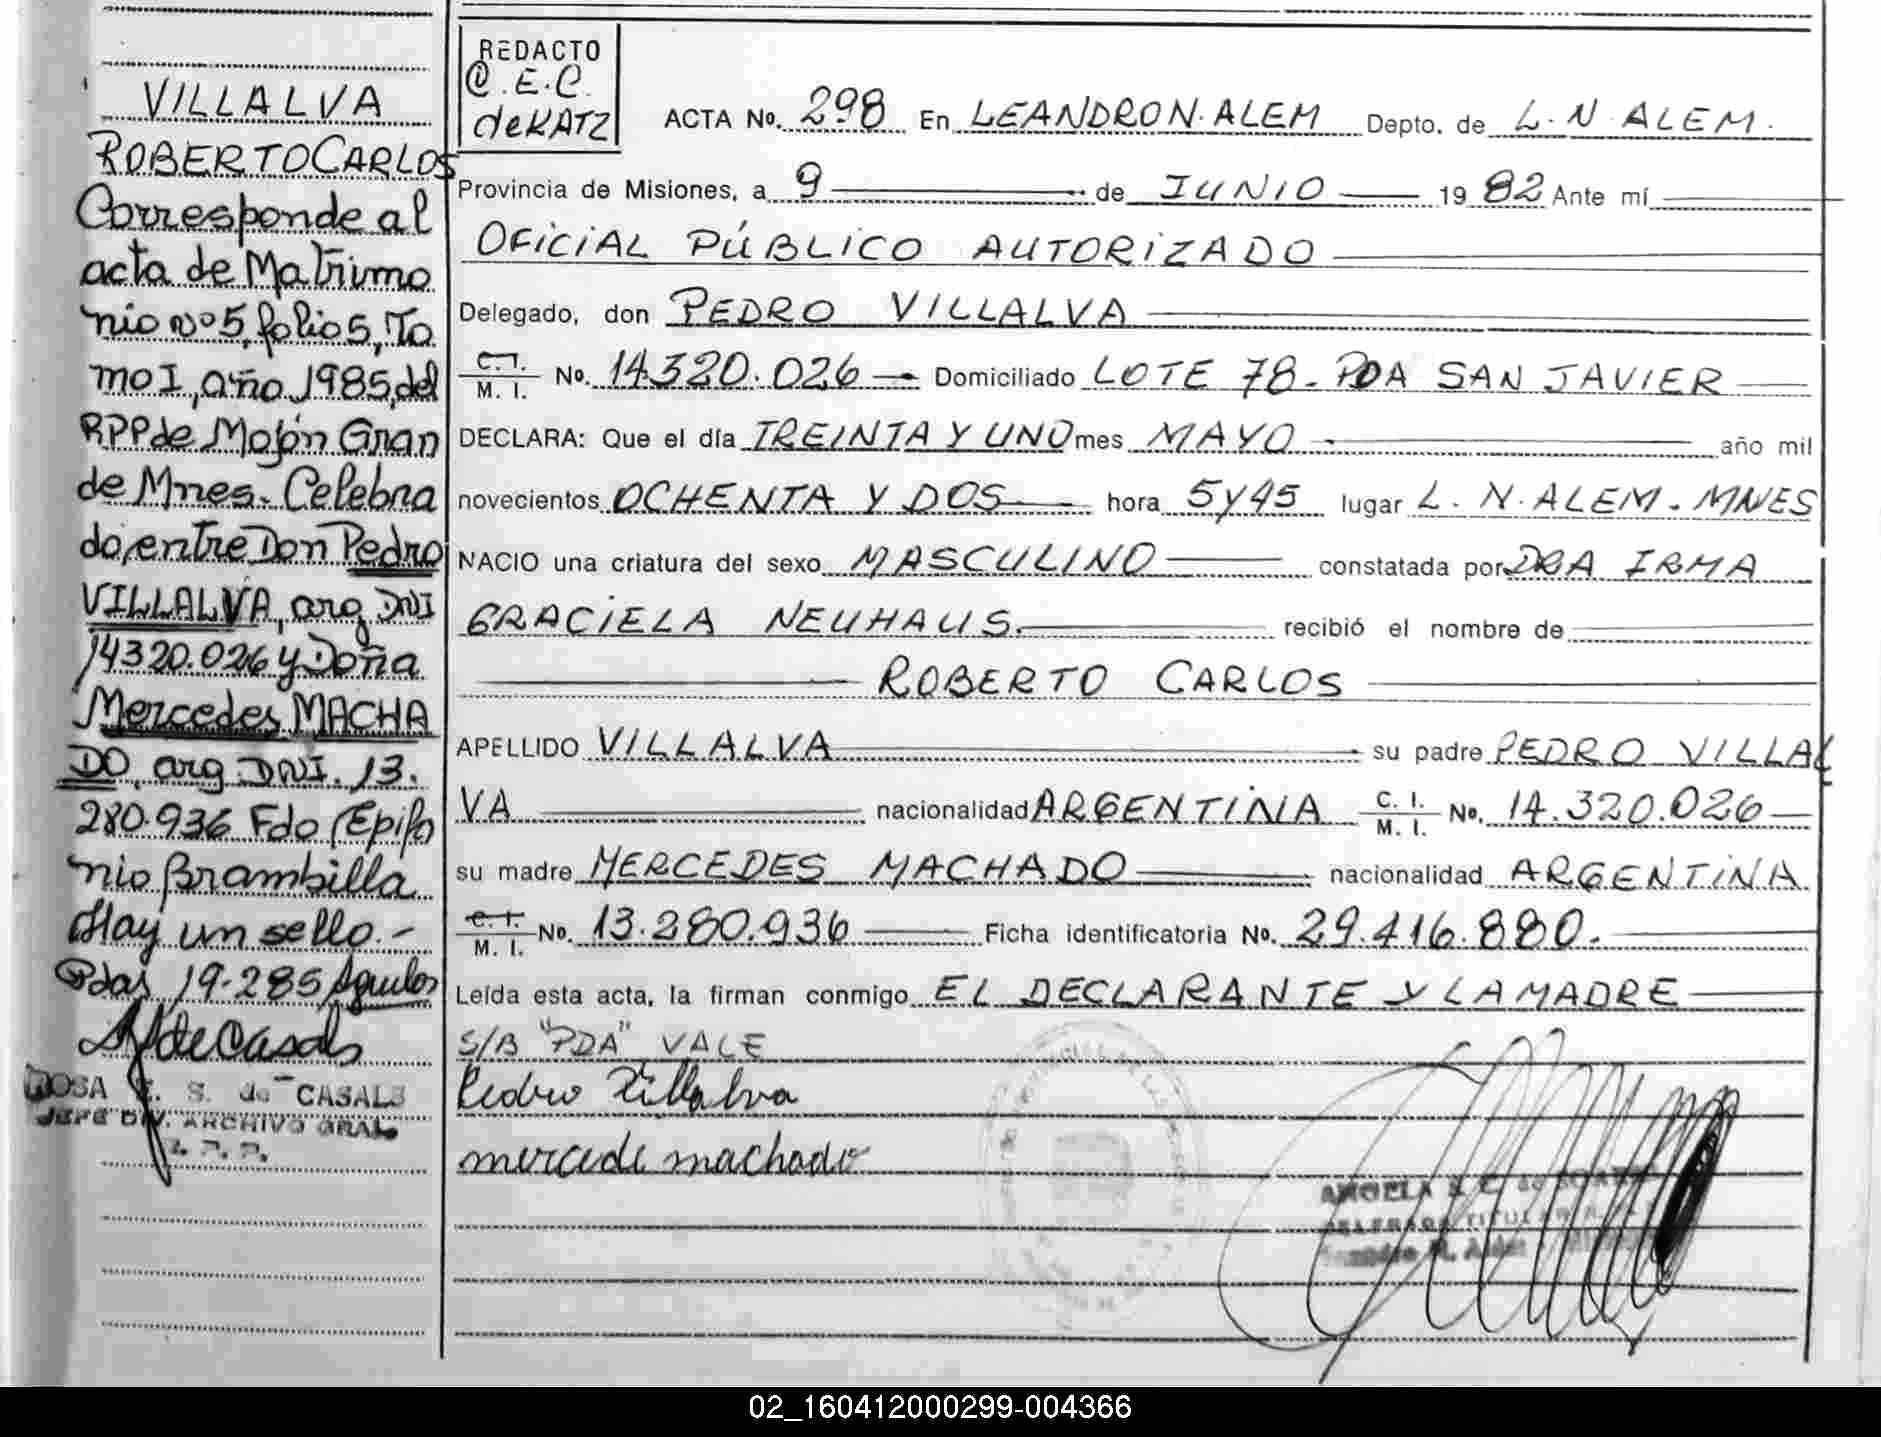 VILLALVA
ROBERTO CARLOS
Corresponde al
acta de Matrimo
nio nº 5, folio 5, To
mo I, año 1985, del
RPP de Mojón Gran
de Mnes. Celebra
do, entre Don Pedro
VILLALVA, arg. DNI
14320.026 y Doña
Mercedes MACHA
DO, arg. DNI. 13.
280.936 Fdo Epifa
nio Brambilla
Hay un sello.-
Pdas 19-285
de Casals
ROSA E. S. de CASALS
JEFE DIV. ARCHIVO GRAL.
R. P. P.
REDACTO
C.E.C.
de KATZ
ACTA No. 298 En LEANDRO N. ALEM Depto. de L. N. ALEM.
Provincia de Misiones, a 9 de JUNIO 1982 Ante mí
OFICIAL PÚBLICO AUTORIZADO
Delegado, don PEDRO VILLALVA
C. I.
M. I. No. 14320.026 Domiciliado LOTE 78 - PDA SAN JAVIER
DECLARA: Que el día TREINTA Y UNO mes MAYO año mil
novecientos OCHENTA Y DOS hora 5 y 45 lugar L. N. ALEM - MNES
NACIO una criatura del sexo MASCULINO constatada por DRA IRMA
GRACIELA NEUHAUS. recibió el nombre de
ROBERTO CARLOS
APELLIDO VILLALVA su padre PEDRO VILLAL
VA nacionalidad ARGENTINA C. I.
M. I. No. 14.320.026
su madre MERCEDES MACHADO nacionalidad ARGENTINA.
C. I.
M. I. No. 13.280.936 Ficha identificatoria No. 29.416.880.
Leída esta acta, la firman conmigo EL DECLARANTE Y LA MADRE
S/B "PDA" VALE
Pedro Villalva
mercede machado
ANGELA
DELEGADA TITULAR
02_160412000299-004366